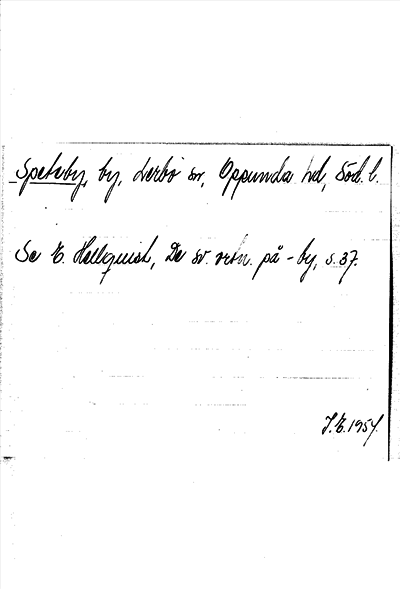 Speteby, by, Lerbo sn, Oppunda hd, Söd. l.
Se E. Hellquist, De sv. ortn. på -by, s. 37.
I.E. 1954.